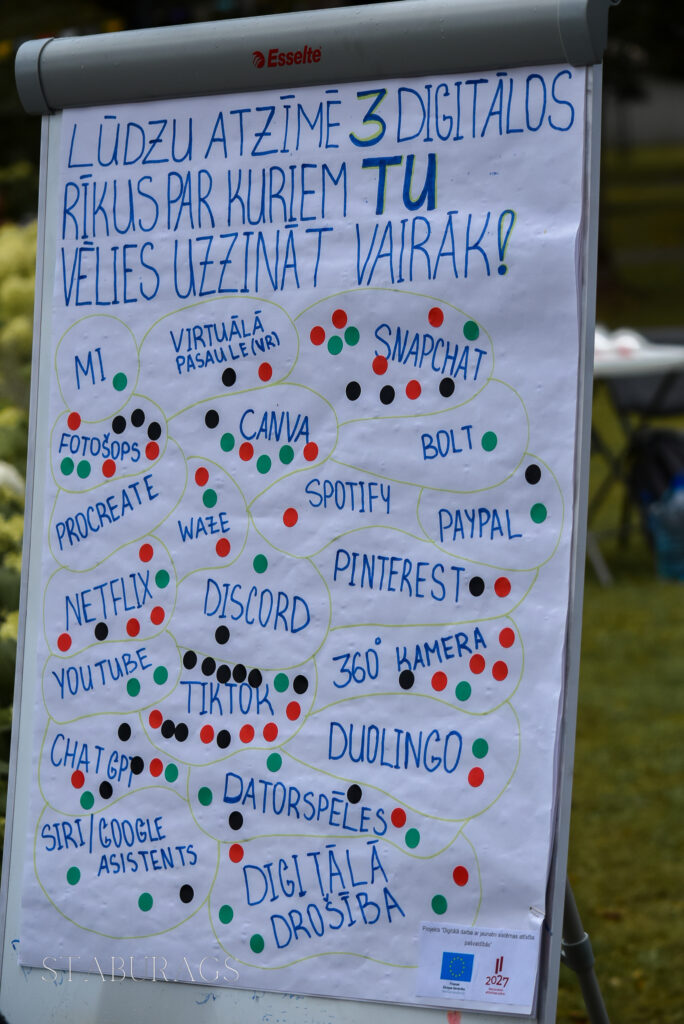 Esselte
LŪDZU ATZĪMĒ 3 DIGITĀLOS
RĪKUS PAR KURIEM TU
VĒLIES UZZINĀT VAIRĀK!
MI
VIRTUĀLĀ
PASAULE (VR)
SNAPCHAT
FOTOŠOPS
CANVA
BOLT
PROCREATE
WAZE
SPOTIFY
PAYPAL
NETFLIX
DISCORD
PINTEREST
YOUTUBE
TIKTOK
360° KAMERA
CHAT GPT
DATORSPĒLES
DUOLINGO
SIRI/GOOGLE
ASISTENTS
DIGITĀLĀ
DROŠĪBA
Projekts "Digitālā darba ar jaunatni sistēmas attīstība
pašvaldībās"
2027
STABURAGS